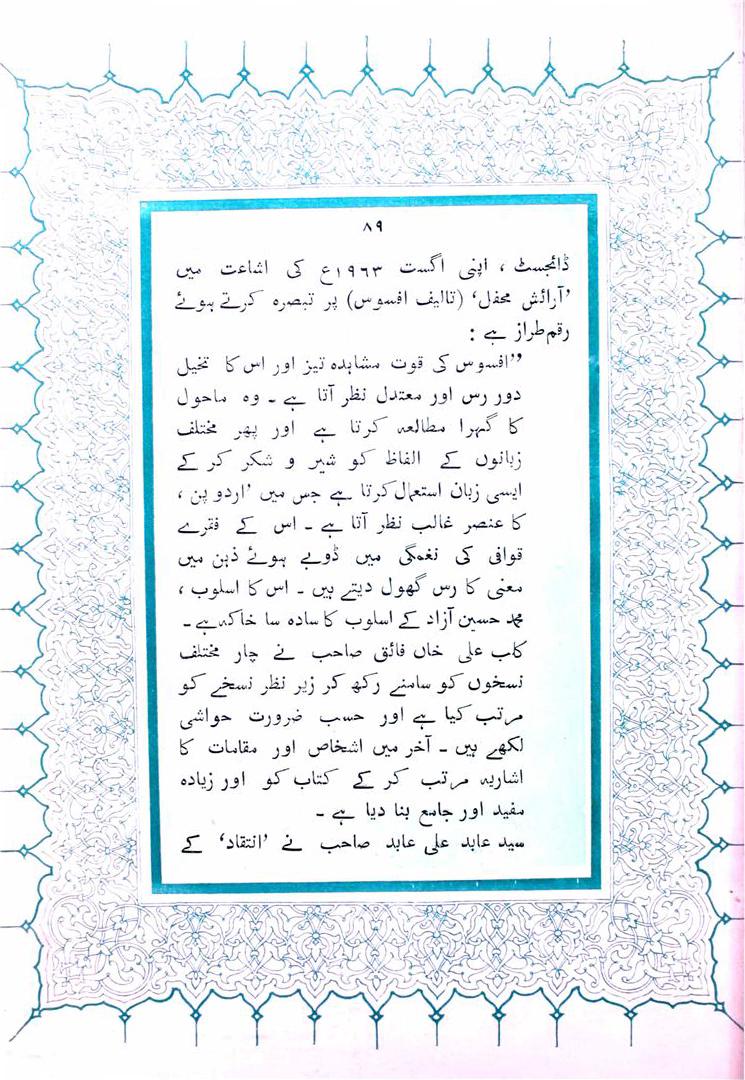 ۸۹
ڈائجسٹ ، اپنی اگست ۱۹٦۳ع کی اشاعت میں
’آرائش محفل‘ (تالیف افسوس) پر تبصرہ کرتے ہوئے
رقم طراز ہے :
”افسوس کی قوت مشاہدہ تیز اور اس کا تخیل
دور رس اور معتدل نظر آتا ہے ۔ وہ ماحول
کا گہرا مطالعہ کرتا ہے اور پھر مختلف
زبانوں کے الفاظ کو شیر و شکر کر کے
ایسی زبان استعمال کرتا ہے جس میں ’اردو پن ،
کا عنصر غالب نظر آتا ہے ۔ اس کے فقرے
قوافی کی نغمگی میں ڈوبے ہوئے ذہن میں
معنی کا رس گھول دیتے ہیں ۔ اس کا اسلوب ،
محمد حسین آزاد کے اسلوب کا سادہ سا خاکہ ہے ۔
کلب علی خاں فائق صاحب نے چار مختلف
نسخوں کو سامنے رکھ کر زیر نظر نسخے کو
مرتب کیا ہے اور حسب ضرورت حواشی
لکھے ہیں ۔ آخر میں اشخاص اور مقامات کا
اشاریہ مرتب کر کے کتاب کو اور زیادہ
مفید اور جامع بنا دیا ہے ۔
سید عابد علی عابد صاحب نے ’انتقاد‘ کے